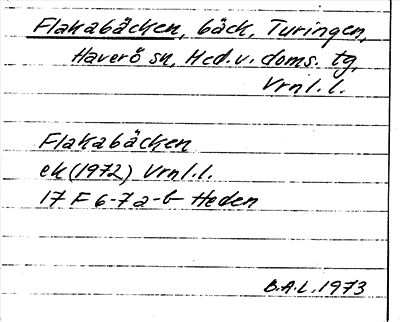 Flakabäcken, bäck, Turingen,
Haverö sn, Med.v. doms. tg,
Vrnl.l.
Flakabäcken
ek (1972) Vrnl.l.
17 F 6-7 a-b Heden
B.A.L. 1973